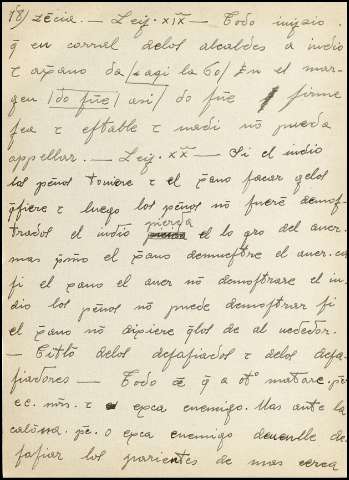 18/ zēcia. — Leij. xıx̄ — Todo iuizio.
q̄ en corral delos alcaldes a iudio
τ xp̄ano da /aqi la 60/ En el mar-
gen /do fūe/ asi/ do fūe firme
sea τ estable τ nadi nō pueda
appellar. — Leij. xx̄ — Si el iudio
los peños touiere τ el xp̄ano sacar gelos
q̄siere τ luego los peños nō fuerē demos-
trados el iudio pierda el lo gro del auer.
mas p̄mo el xp̄ano demuestre el auer.
si el xp̄ano el auer nō demostrare el iu-
dio los peños nō puede demostrar si
el xp̄ano nō dixiere q̄los de al uededor.
— Titlō delos desafiados τ delos desa-
fiadores — Todo q̄ a ot° matare. pē
ee. τ exca enemigo. Mas ante la
calōna. pē. o exca enemigo deuenlle de-
safiar los parientes de mas cerca